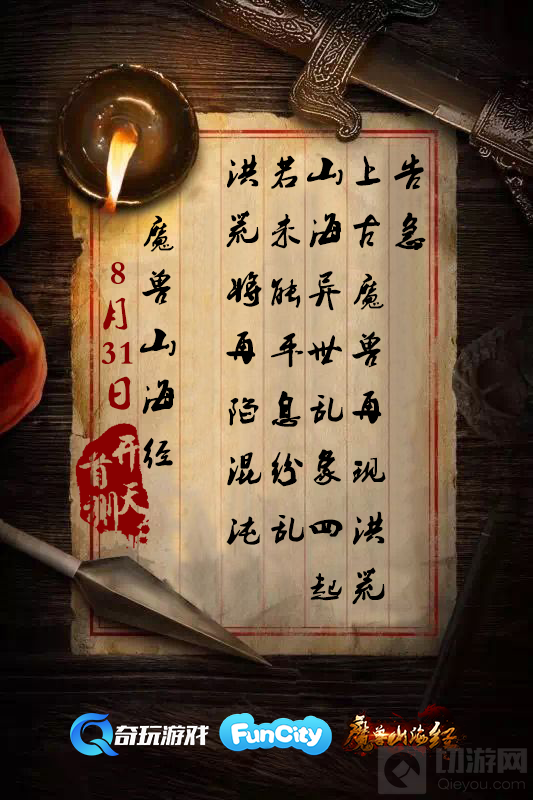 告急
上古魔兽再现洪荒
山海异世乱象四起
若未能平息纷乱
洪荒将再陷混沌
魔兽山海经
8月31日
开天
首测
奇玩游戏
FunCity
魔兽山海经
切游网
Qieyou.com